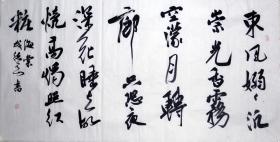 東風嫋嫋泛
崇光香霧
空濛月轉
廊只恐夜
深花睡去故
燒高燭照紅
粧海棠